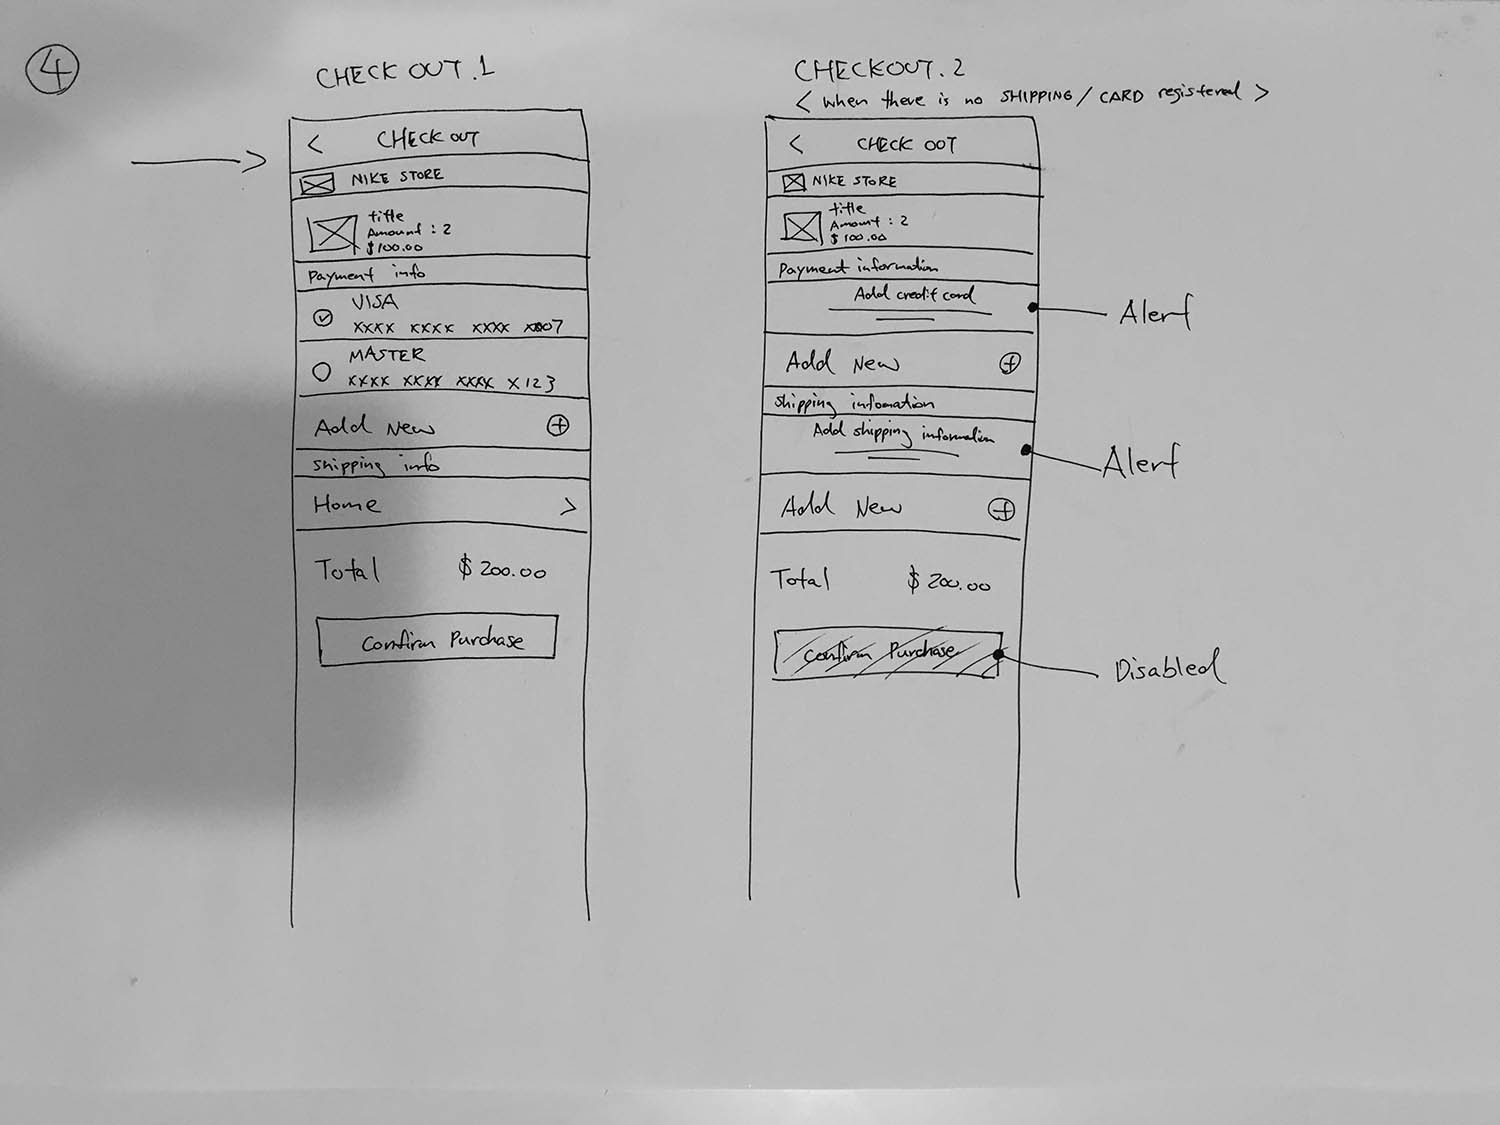 4
CHECK OUT.1
< CHECK OUT
NIKE STORE
title
Amount : 2
$100.00
Payment info
VISA
xxxx xxxx xxxx xx07
MASTER
xxxx xxxx xxxx x123
Add New
Shipping info
Home >
Total $200.00
Confirm Purchase
CHECKOUT.2
< when there is no SHIPPING/CARD registered >
< CHECK OUT
NIKE STORE
title
Amount : 2
$100.00
Payment information
Add credit card
Alert
Add New
Shipping infomation
Add shipping information
Alert
Add New
Total $200.00
Confirm Purchase
Disabled